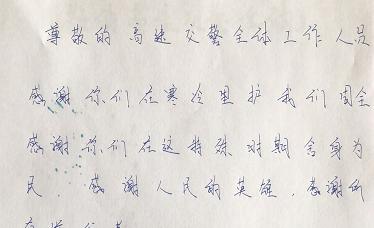 尊敬的高速交警全体工作人员
感谢你们在寒冷里护我们周全
感谢你们在这特殊时期舍身为
民,感谢人民的英雄,感谢所